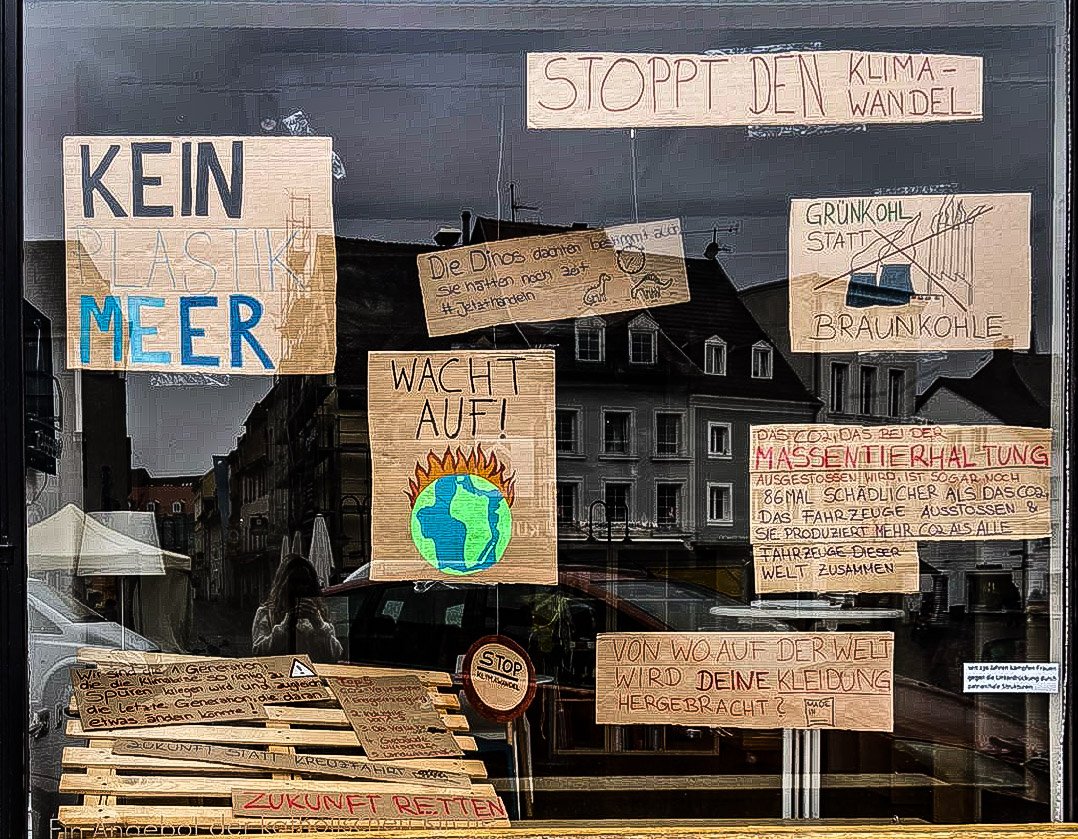 STOPPT DEN KLIMA-
WANDEL
KEIN
PLASTIK
MEER
Die Dinos dachten bestimmt auch
sie hätten noch Zeit
#Jetzthandeln
GRÜNKOHL
STATT
BRAUNKOHLE
WACHT
AUF!
DAS CO2, DAS BEI DER
MASSENTIERHALTUNG
AUSGESTOSSEN WIRD, IST SOGAR NOCH
86 MAL SCHÄDLICHER ALS DAS CO2,
DAS FAHRZEUGE AUSSTOSSEN &
SIE PRODUZIERT MEHR CO2 ALS ALLE
FAHRZEUGE DIESER
WELT ZUSAMMEN
VON WO AUF DER WELT
WIRD DEINE KLEIDUNG
HERGEBRACHT?
MADE
STOP
KLIMAWANDEL
seit 236 Jahren kämpfen Frauen
gegen die Unterdrückung durch
patriarchale Strukturen
Wir sind die 1. Generation
die den Klimawandel richtig zu
spüren kriegen wird und
die letzte Generation, die daran
etwas ändern kann!
ZUKUNFT STATT KREUZFAHRT
ZUKUNFT RETTEN
Ein Angebot der katholischen